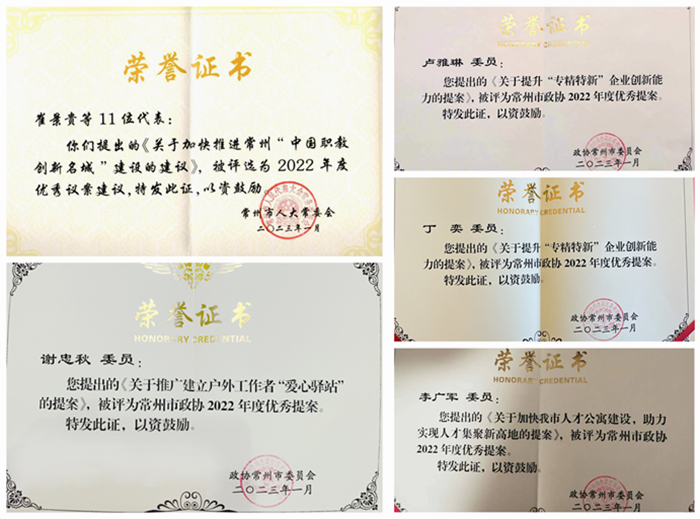 荣誉证书
崔景贵等11位代表：
你们提出的《关于加快推进常州“中国职教
创新名城”建设的建议》，被评选为2022年度
优秀议案建议，特发此证，以资鼓励。
常州市人大常委会
二〇二三年一月
荣誉证书
HONORARY CREDENTIAL
谢忠秋 委员：
您提出的《关于推广建立户外工作者“爱心驿站”
的提案》，被评为常州市政协2022年度优秀提案。
特发此证，以资鼓励。
政协常州市委员会
二〇二三年一月
荣誉证书
HONORARY CREDENTIAL
卢雅琳 委员：
您提出的《关于提升“专精特新”企业创新能
力的提案》，被评为常州市政协2022年度优秀提案。
特发此证，以资鼓励。
政协常州市委员会
二〇二三年一月
荣誉证书
HONORARY CREDENTIAL
丁 奕 委员：
您提出的《关于提升“专精特新”企业创新能
力的提案》，被评为常州市政协2022年度优秀提案。
特发此证，以资鼓励。
政协常州市委员会
二〇二三年一月
荣誉证书
HONORARY CREDENTIAL
李广军 委员：
您提出的《关于加快我市人才公寓建设，助力
实现人才集聚新高地的提案》，被评为常州市政协
2022年度优秀提案。
特发此证，以资鼓励。
政协常州市委员会
二〇二三年一月